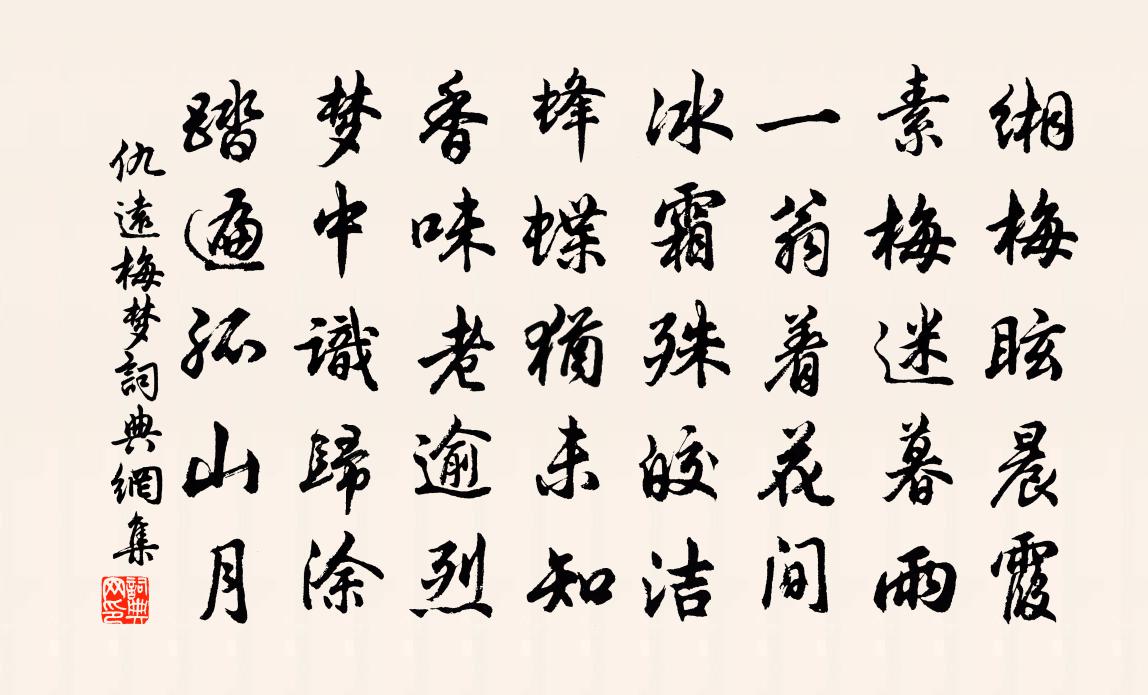 缃梅眩晨霞
素梅迷暮雨
一翁着花间
冰霜殊皎洁
蜂蝶犹未知
香味老逾烈
梦中識歸涂
踏遍孤山月
仇遠梅梦詞典網集
詞典網印